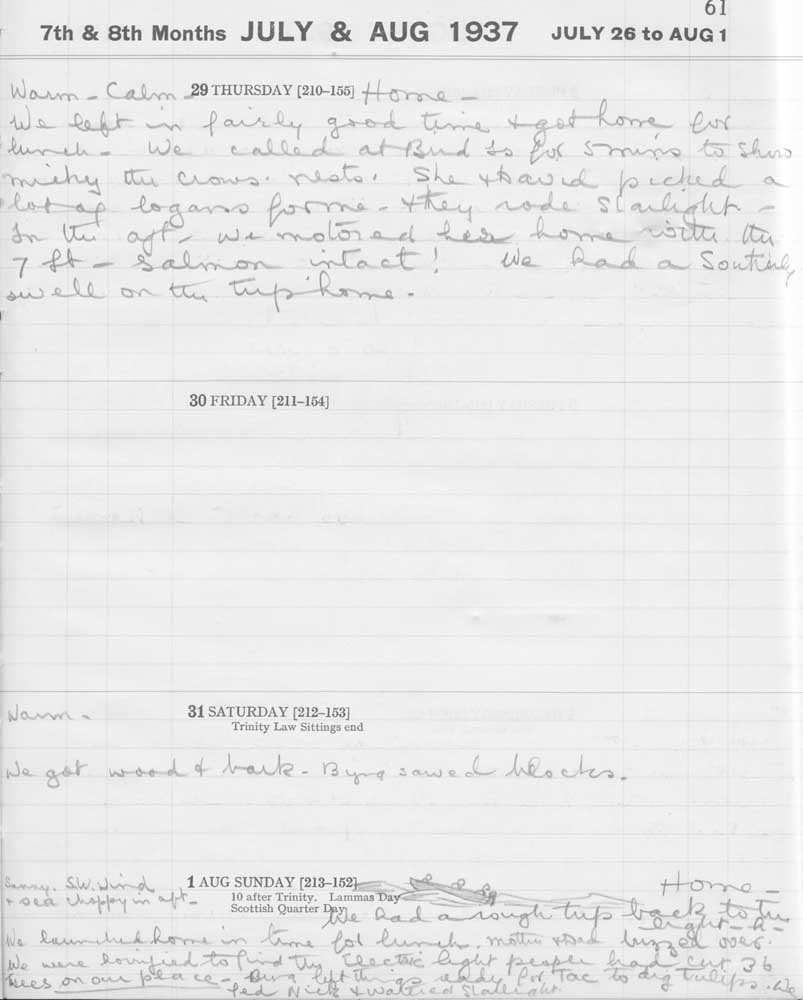 61
7th & 8th Months JULY & AUG 1937 JULY 26 to AUG 1
Warm - Calm - 29 THURSDAY [210–155] Home -
We left in fairly good time & got home for
lunch. We called at Bird Is for 5 mins to show
micky the crows. nests. She & David picked a
lot of logans for me - & they rode Starlight -
In the aft - we motored her home with the
7 ft - Salmon intact! We had a
swell on the trip home.
30 FRIDAY [211–154]
Warm - 31 SATURDAY [212–153]
Trinity Law Sittings end
We got wood & bark - Byng sawed blocks.
Sunny. S.W. Wind 1 AUG SUNDAY [213–152] Home -
& sea choppy in aft - 10 after Trinity. Lammas Day
Scottish Quarter Day We had a rough trip back to the
We launched home in time for lunch. mother & Dad buzzed over.
We were horrified to find the Electric light people had cut 36
trees on our place - Byng left things ready for Tac to dig tulips. We
fed Nick & watered Starlight